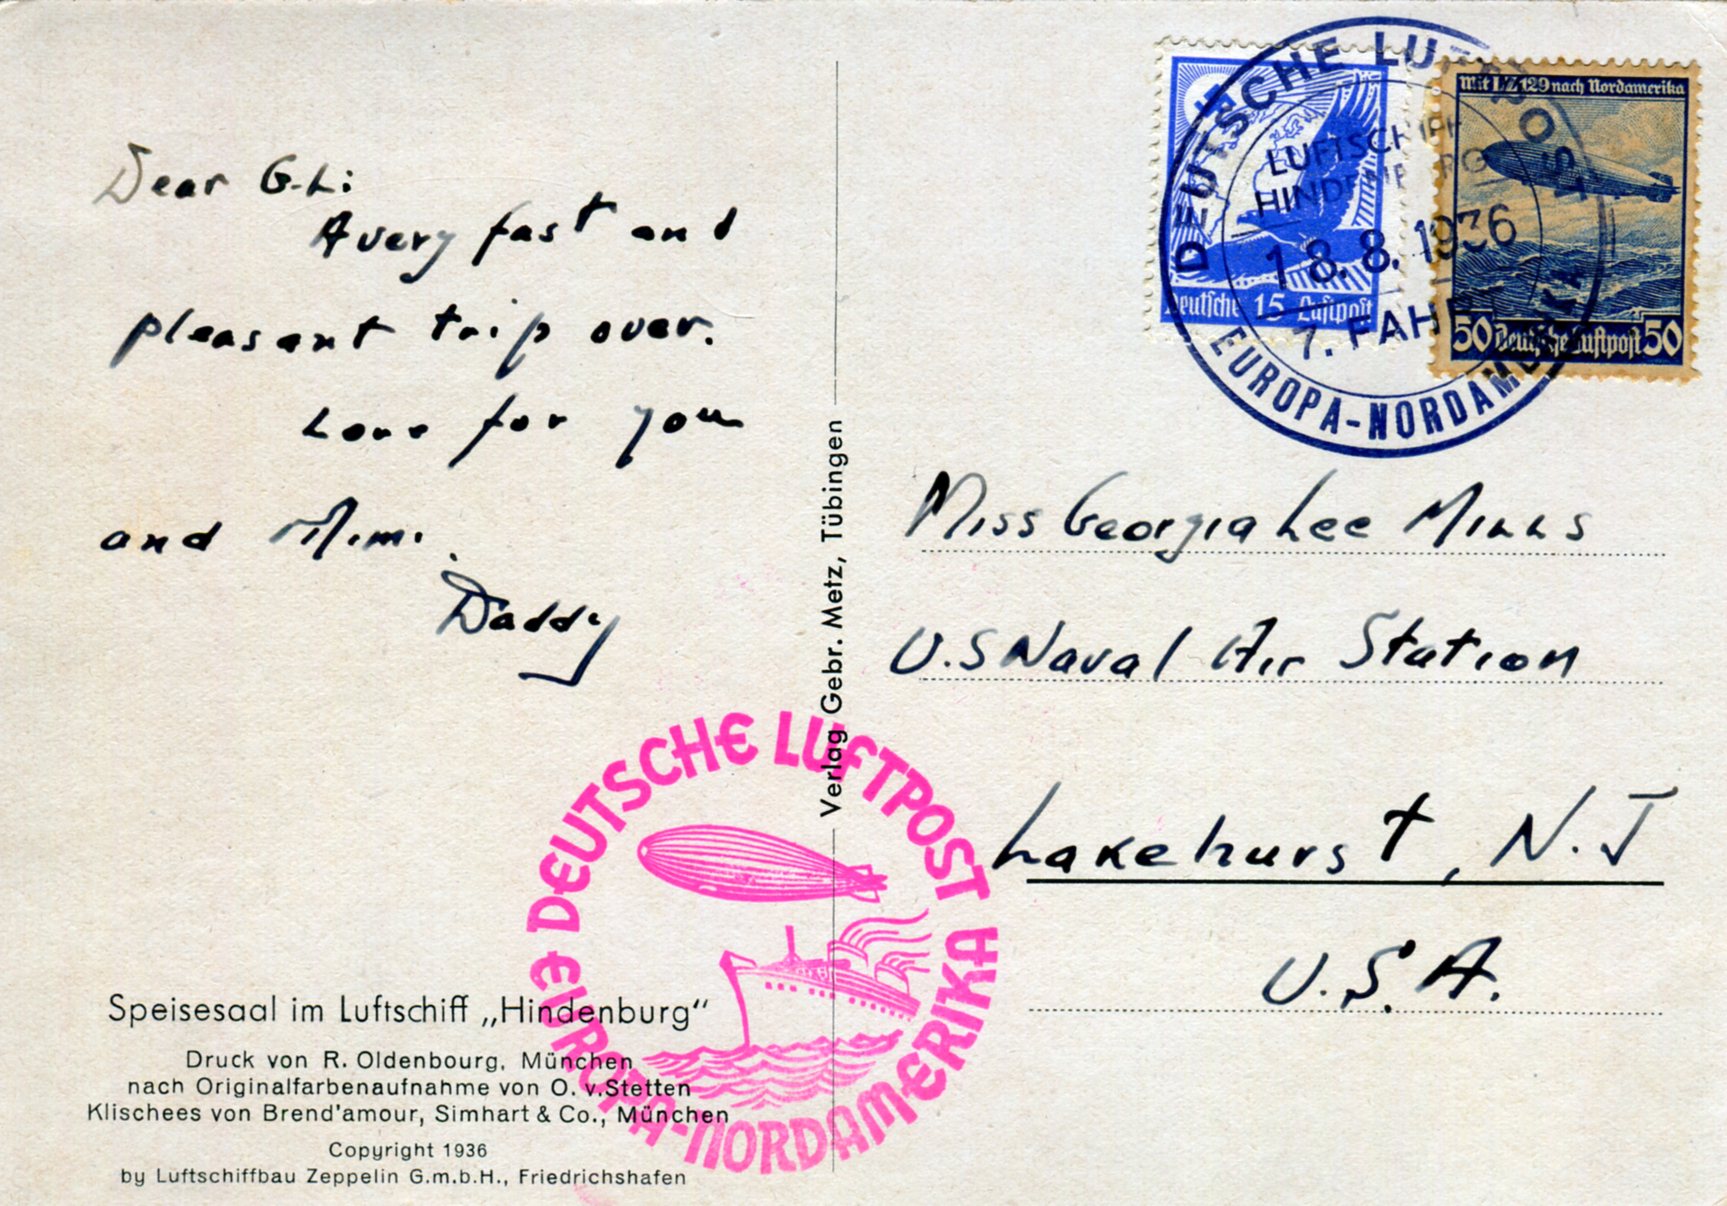 Dear G-L:
A very fast and
pleasant trip over.
Love for you
and Mimi.
Daddy
Speisesaal im Luftschiff „Hindenburg“
Druck von R. Oldenbourg, München
nach Originalfarbenaufnahme von O. v. Stetten
Klischees von Brend'amour, Simhart & Co., München
Copyright 1936
by Luftschiffbau Zeppelin G.m.b.H., Friedrichshafen
Verlag Gebr. Metz, Tübingen
DEUTSCHE LUFTPOST
EUROPA-NORDAMERIKA
DEUTSCHE LUFTPOST
LUFTSCHIFF
HINDENBURG
18.8.1936
7. FAHRT
EUROPA-NORDAMERIKA
Deutsche 15 Luftpost
Mit LZ 129 nach Nordamerika
50 Deutsche Luftpost 50
Miss Georgia Lee Mills
U.S Naval Air Station
Lakehurst, N.J
U.S.A.